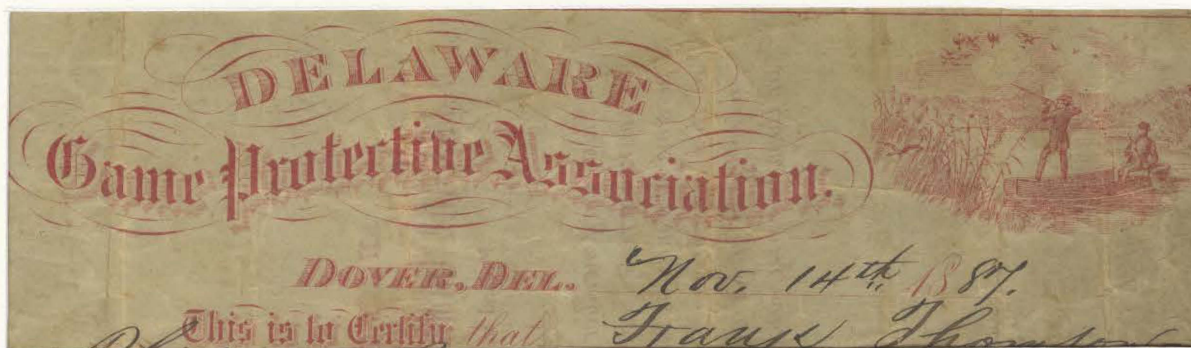 DELAWARE
Game Protective Association.
DOVER, DEL. Nov. 14th 1887.
This is to Certify that Frank Thomson